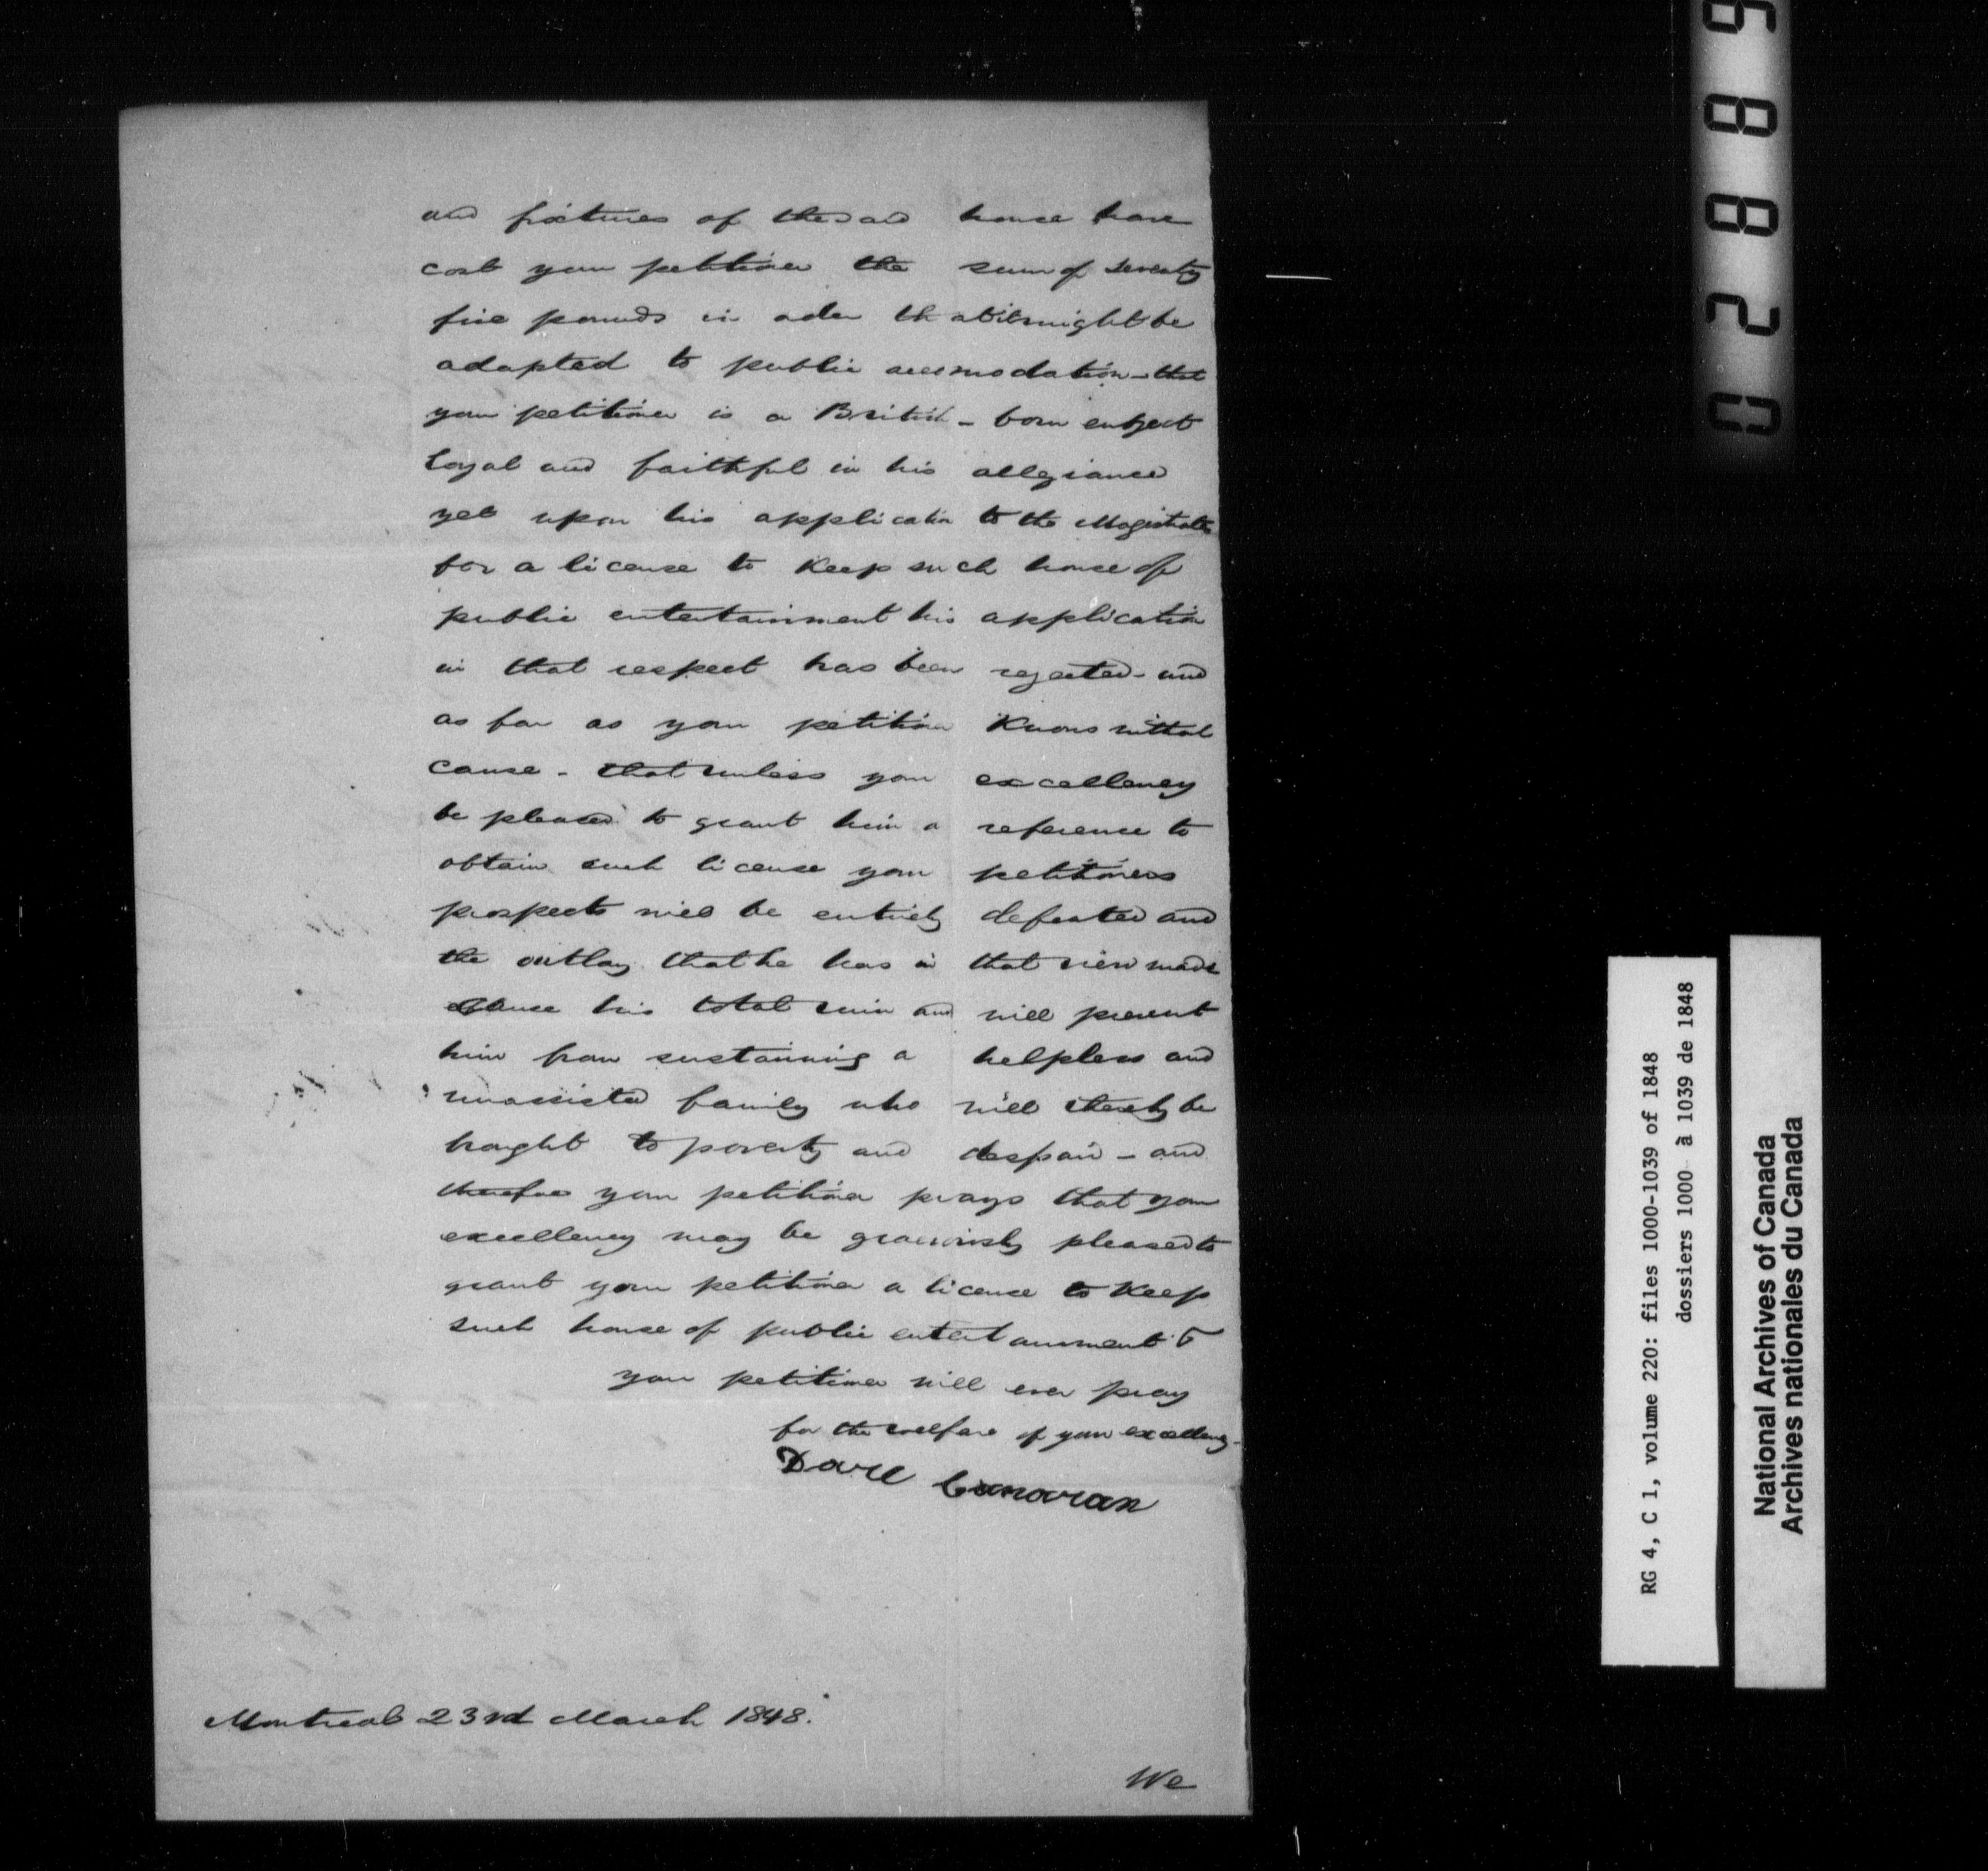 and fixtures of the said house have
cost your petitioner the sum of seventy
five pounds in order that it might be
adapted to public accomodation - that
your petitioner is a British - born subject
loyal and faithful in his allegiance
yet upon his application to the Magistrates
for a license to keep such house of
public entertainment his application
in that respect has been rejected - and
as far as your petitioner knows without
cause - that unless your excellency
be pleased to grant him a reference to
obtain such license your petitioners
prospects will be entirely defeated and
the outlay that he has in that view made
cause his total ruin and will prevent
him from sustaining a helpless and
unassisted family who will thereby be
brought to poverty and despair - and
therefore your petitioner prays that your
excellency may be graciously pleased to
grant your petitioner a license to keep
such house of public entertainment &
your petitioner will ever pray
for the welfare of your excellency -
Canavan
Montreal 23rd March 1848.
We
02889
RG 4, C 1, volume 220: files 1000-1039 of 1848
dossiers 1000 à 1039 de 1848
National Archives of Canada
Archives nationales du Canada